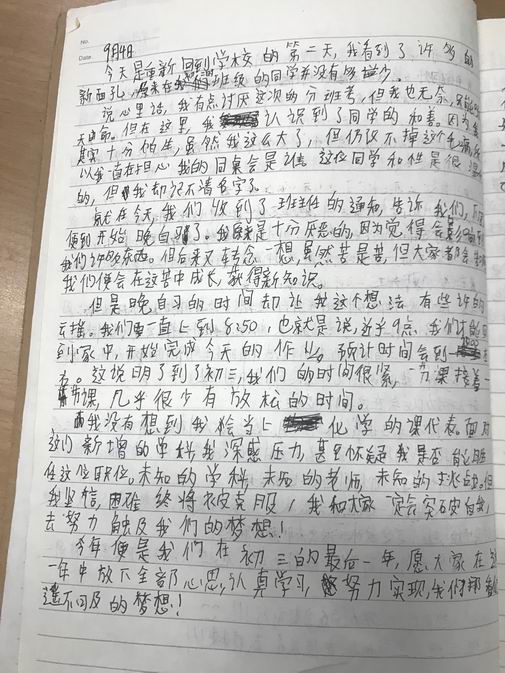 No.
Date
9月4日
今天是重新回到学校的第二天,我看到了许多的
新面孔,原来在我班级的同学并没有多少。
说心里话,我有点讨厌这次的分班考,但我也无奈,只能
天命。但在这里,我认识到了同学的和善。因为我
其实十分怕生,虽然我这么大了,但仍改不掉这个毛病,
以我一直在担心我的同桌会是谁,这位同学和性是很
的,但我却记不清名字了。
就在今天,我们收到了班主任的通知,告诉我们,
便到开始晚自习了。我是十分厌恶的,因为觉得会影响
我们许多东西。但后来又转念一想,虽然苦是苦,但大家都会
我们便会在这苦中成长,获得新知识。
但是晚自习的时间却让我这个想法有些许的
动摇。我们要一直上到8:50,也就是说,将近9点,我们才能回
到家中,开始完成今天的作业,预计时间会到
右。这说明了到了初三,我们的时间很紧,一节课接着一
节课,几乎很少有放松的时间。
我没有想到我给当上化学的课代表。面对
这门新增的学科我深感压力,甚至怀疑我是否能胜
任这位职位。未知的学科,未知的老师,未知的挑战。但
我坚信,困难终将被克服,我和大家一定会突破自我,
去努力触及我们的梦想!
今年便是我们在初三的最后一年,愿大家在这
一年中放下全部心思,认真学习,努力实现,我们那看似
遥不可及的梦想!